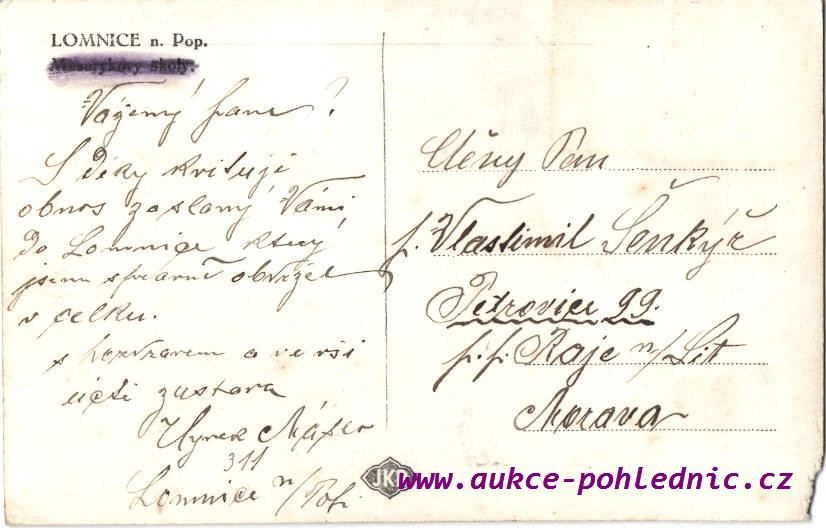 LOMNICE n. Pop.
Masarykovy školy.
Vážený pane!
S díky kvituji
obnos zaslaný Vámi
do Lomnice který
jsem správně obvržel
v celku.
s pozdravem a ve vší
úctě zustava
Hynek
311
Lomnice n/Pop.
Ctěny Pan
p. Vlastimil Šenkýř
Petrovice 99.
p. p. Raje n/Lit
Morava
JKO
www.aukce-pohlednic.cz